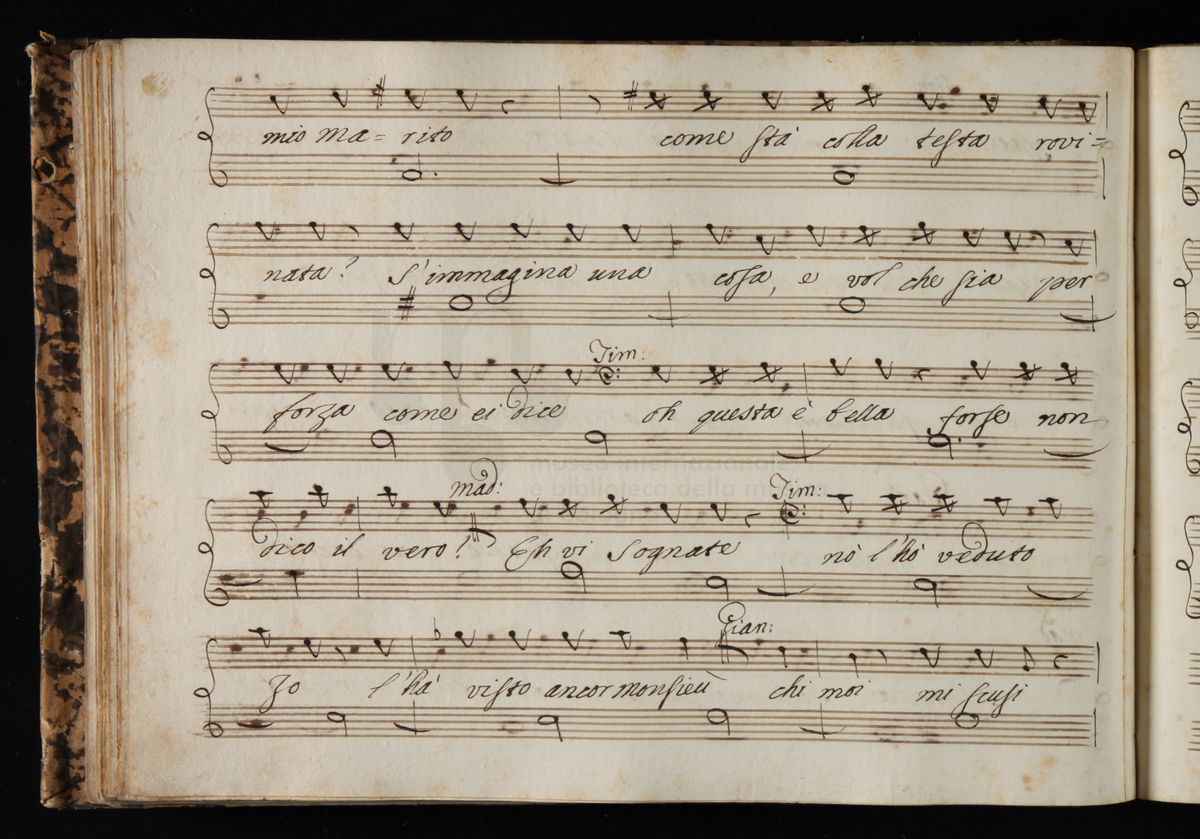 mio ma= rito come stà colla testa rovi=
nata? s'immagina una cosa, e vol che sia per
Tim:
forza come ei dice oh questa è bella forse non
mad: Tim:
dico il vero? Eh vi sognate nò l'hò veduto
Gian:
Io l'hà visto ancor monsieù chi moi mi scusi
museo internazionale
e biblioteca della musica